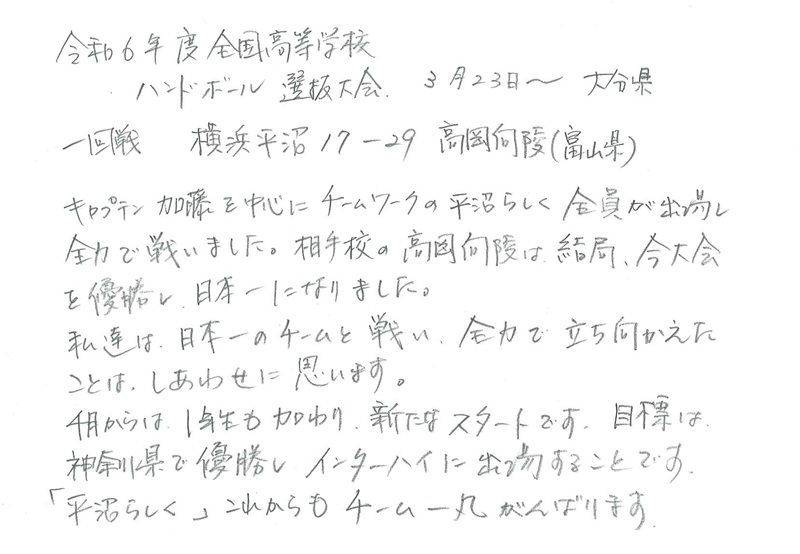 令和6年度全国高等学校
ハンドボール 選抜大会. 3月23日〜 大分県
一回戦 横浜平沼 17-29 高岡向陵(富山県)
キャプテン 加藤を中心にチームワークの平沼らしく 全員が出場し
全力で戦いました。相手校の高岡向陵は、結局、今大会
を優勝し、日本一になりました。
私達は、日本一のチームと戦い、全力で立ち向かえた
ことは、しあわせに思います。
4月からは、1年生も加わり、新たなスタートです. 目標は、
神奈川県で優勝し インターハイに出場することです.
「平沼らしく」これからもチーム一丸がんばります.